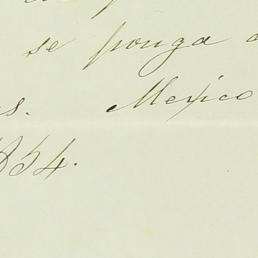 se ponga
s. Mexico
1854.